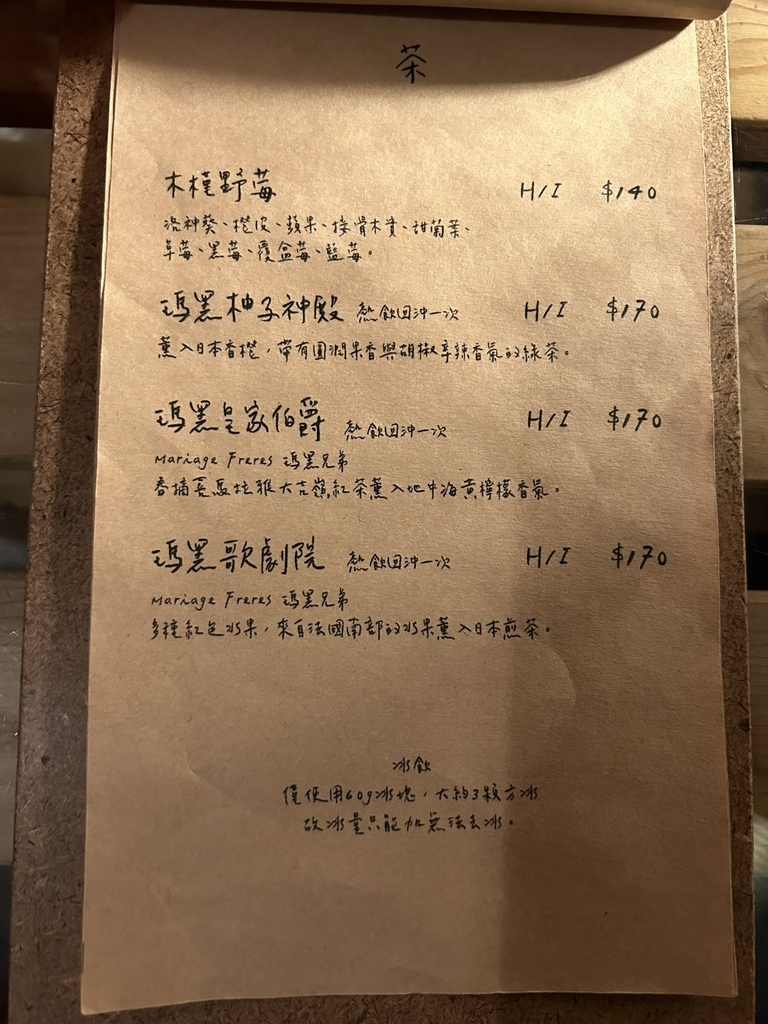 茶
木槿野莓 H/I $140
洛神葵、橙皮、蘋果、接骨木實、甜菊葉、
草莓、黑莓、覆盆莓、藍莓。
瑪黑柚子神殿 熱飲回沖一次 H/I $170
薰入日本香橙，帶有圓潤果香與胡椒辛辣香氣的綠茶。
瑪黑皇家伯爵 熱飲回沖一次 H/I $170
Mariage Freres 瑪黑兄弟
春摘喜馬拉雅大吉嶺紅茶薰入地中海黃檸檬香氣。
瑪黑歌劇院 熱飲回沖一次 H/I $170
Mariage Freres 瑪黑兄弟
多種紅色水果，來自法國南部的水果薰入日本煎茶。
冰飲
僅使用60g冰塊，大約3顆方冰
故冰量只能加無法去冰。